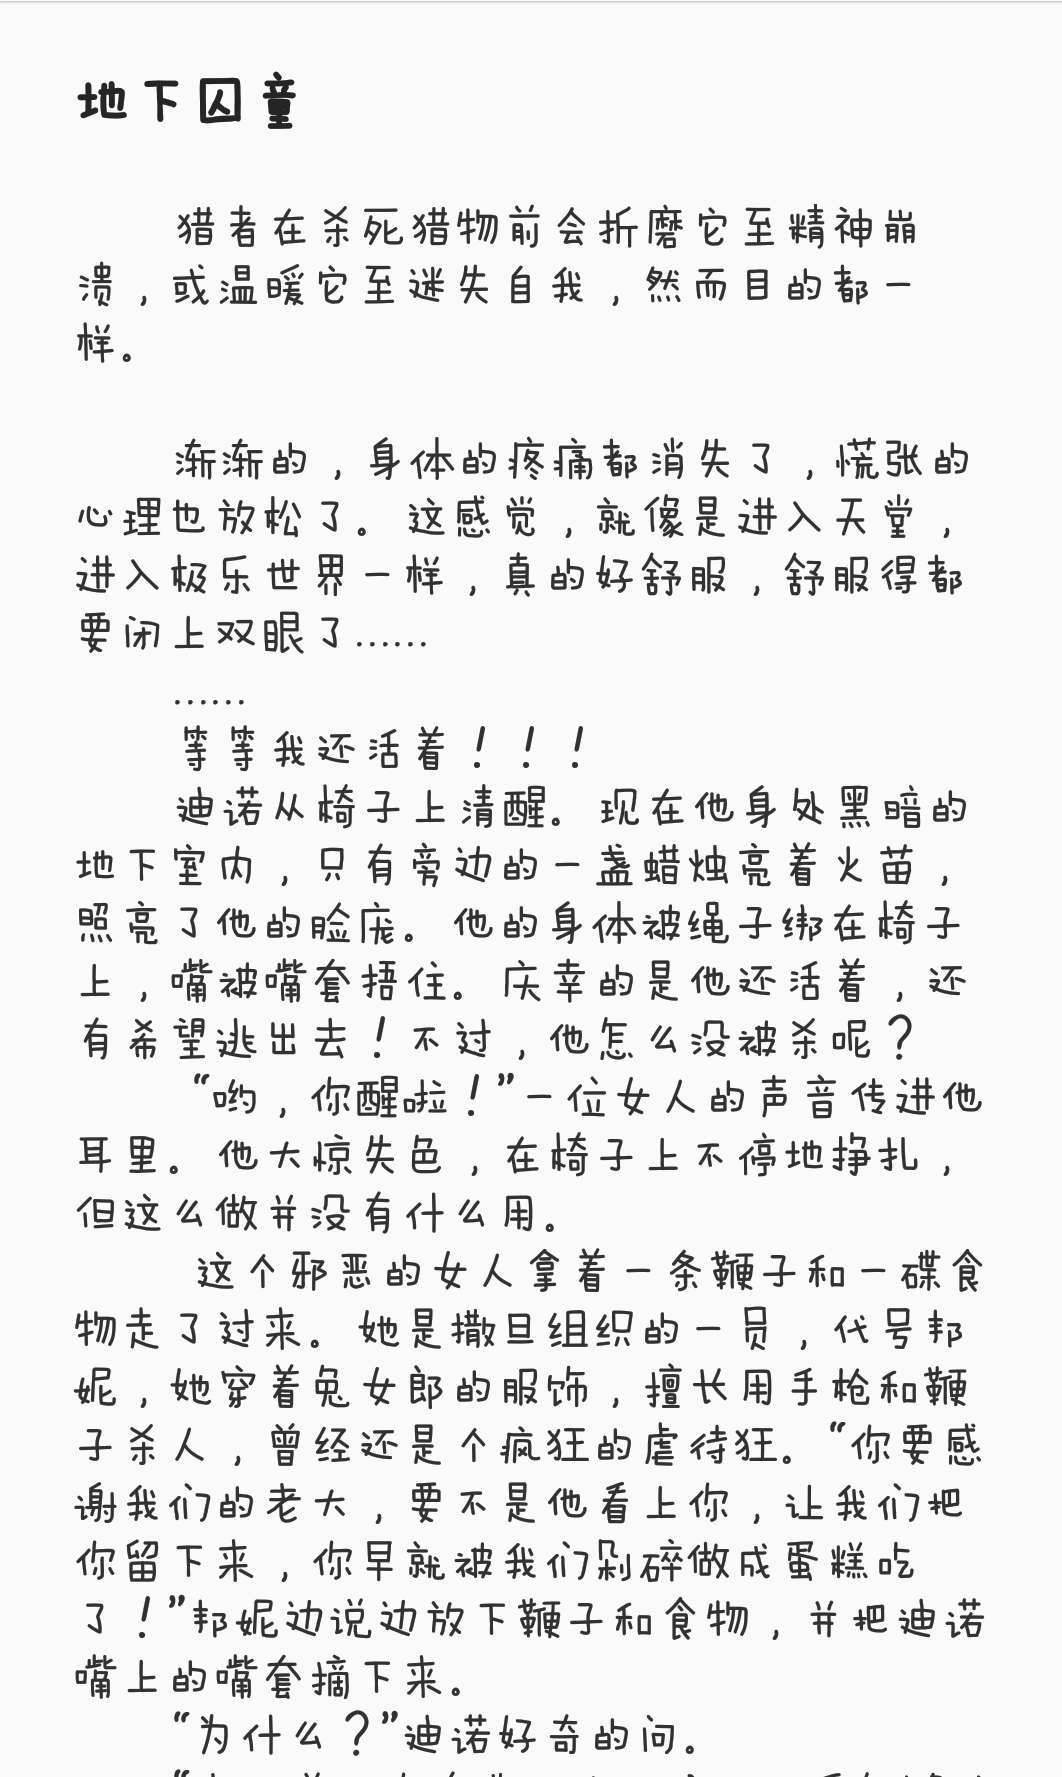 地下囚童
猎者在杀死猎物前会折磨它至精神崩
溃，或温暖它至迷失自我，然而目的都一
样。
渐渐的，身体的疼痛都消失了，慌张的
心理也放松了。这感觉，就像是进入天堂，
进入极乐世界一样，真的好舒服，舒服得都
要闭上双眼了……
……
等等我还活着！！！
迪诺从椅子上清醒。现在他身处黑暗的
地下室内，只有旁边的一盏蜡烛亮着火苗，
照亮了他的脸庞。他的身体被绳子绑在椅子
上，嘴被嘴套捂住。庆幸的是他还活着，还
有希望逃出去！不过，他怎么没被杀呢？
“哟，你醒啦！”一位女人的声音传进他
耳里。他大惊失色，在椅子上不停地挣扎，
但这么做并没有什么用。
这个邪恶的女人拿着一条鞭子和一碟食
物走了过来。她是撒旦组织的一员，代号邦
妮，她穿着兔女郎的服饰，擅长用手枪和鞭
子杀人，曾经还是个疯狂的虐待狂。“你要感
谢我们的老大，要不是他看上你，让我们把
你留下来，你早就被我们剁碎做成蛋糕吃
了！”邦妮边说边放下鞭子和食物，并把迪诺
嘴上的嘴套摘下来。
“为什么？”迪诺好奇的问。